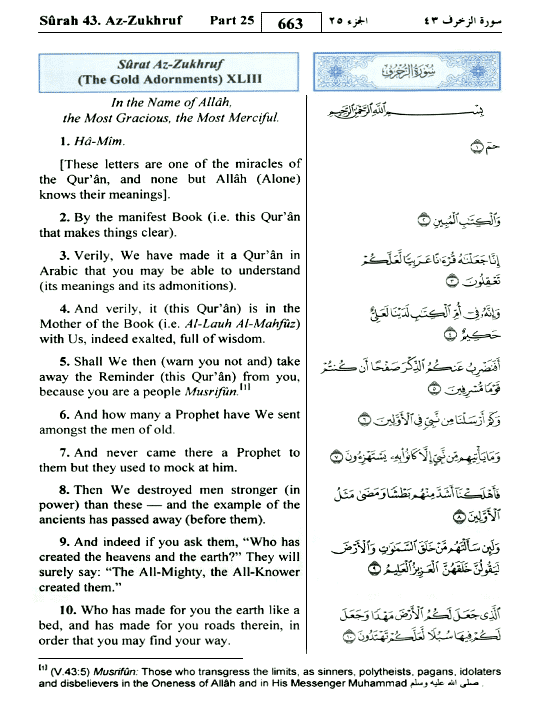 Sûrah 43. Az-Zukhruf Part 25 663 الجزء ٢٥ سورة الزخرف ٤٣
Sûrat Az-Zukhruf
(The Gold Adornments) XLIII
سُورَةُ الزُّخْرُفِ
In the Name of Allâh,
the Most Gracious, the Most Merciful.
بِسْمِ اللَّهِ الرَّحْمَٰنِ الرَّحِيمِ
1. Hâ-Mîm.
[These letters are one of the miracles of
the Qur'ân, and none but Allâh (Alone)
knows their meanings].
حمٓ ١
2. By the manifest Book (i.e. this Qur'ân
that makes things clear).
وَالْكِتَابِ الْمُبِينِ ٢
3. Verily, We have made it a Qur'ân in
Arabic that you may be able to understand
(its meanings and its admonitions).
إِنَّا جَعَلْنَاهُ قُرْءَانًا عَرَبِيًّا لَّعَلَّكُمْ
تَعْقِلُونَ ٣
4. And verily, it (this Qur'ân) is in the
Mother of the Book (i.e. Al-Lauh Al-Mahfûz)
with Us, indeed exalted, full of wisdom.
وَإِنَّهُ فِي أُمِّ الْكِتَابِ لَدَيْنَا لَعَلِيٌّ
حَكِيمٌ ٤
5. Shall We then (warn you not and) take
away the Reminder (this Qur'ân) from you,
because you are a people Musrifûn.[1]
أَفَنَضْرِبُ عَنكُمُ الذِّكْرَ صَفْحًا أَن كُنتُمْ
قَوْمًا مُّسْرِفِينَ ٥
6. And how many a Prophet have We sent
amongst the men of old.
وَكَمْ أَرْسَلْنَا مِن نَّبِيٍّ فِي الْأَوَّلِينَ ٦
7. And never came there a Prophet to
them but they used to mock at him.
وَمَا يَأْتِيهِم مِّن نَّبِيٍّ إِلَّا كَانُوا بِهِ يَسْتَهْزِءُونَ ٧
8. Then We destroyed men stronger (in
power) than these — and the example of the
ancients has passed away (before them).
فَأَهْلَكْنَا أَشَدَّ مِنْهُم بَطْشًا وَمَضَىٰ مَثَلُ
الْأَوَّلِينَ ٨
9. And indeed if you ask them, “Who has
created the heavens and the earth?” They will
surely say: “The All-Mighty, the All-Knower
created them.”
وَلَئِن سَأَلْتَهُم مَّنْ خَلَقَ السَّمَاوَاتِ وَالْأَرْضَ
لَيَقُولُنَّ خَلَقَهُنَّ الْعَزِيزُ الْعَلِيمُ ٩
10. Who has made for you the earth like a
bed, and has made for you roads therein, in
order that you may find your way.
الَّذِي جَعَلَ لَكُمُ الْأَرْضَ مَهْدًا وَجَعَلَ
لَكُمْ فِيهَا سُبُلًا لَّعَلَّكُمْ تَهْتَدُونَ ١٠
[1] (V.43:5) Musrifûn: Those who transgress the limits, as sinners, polytheists, pagans, idolaters
and disbelievers in the Oneness of Allâh and in His Messenger Muhammad صلى الله عليه وسلم .